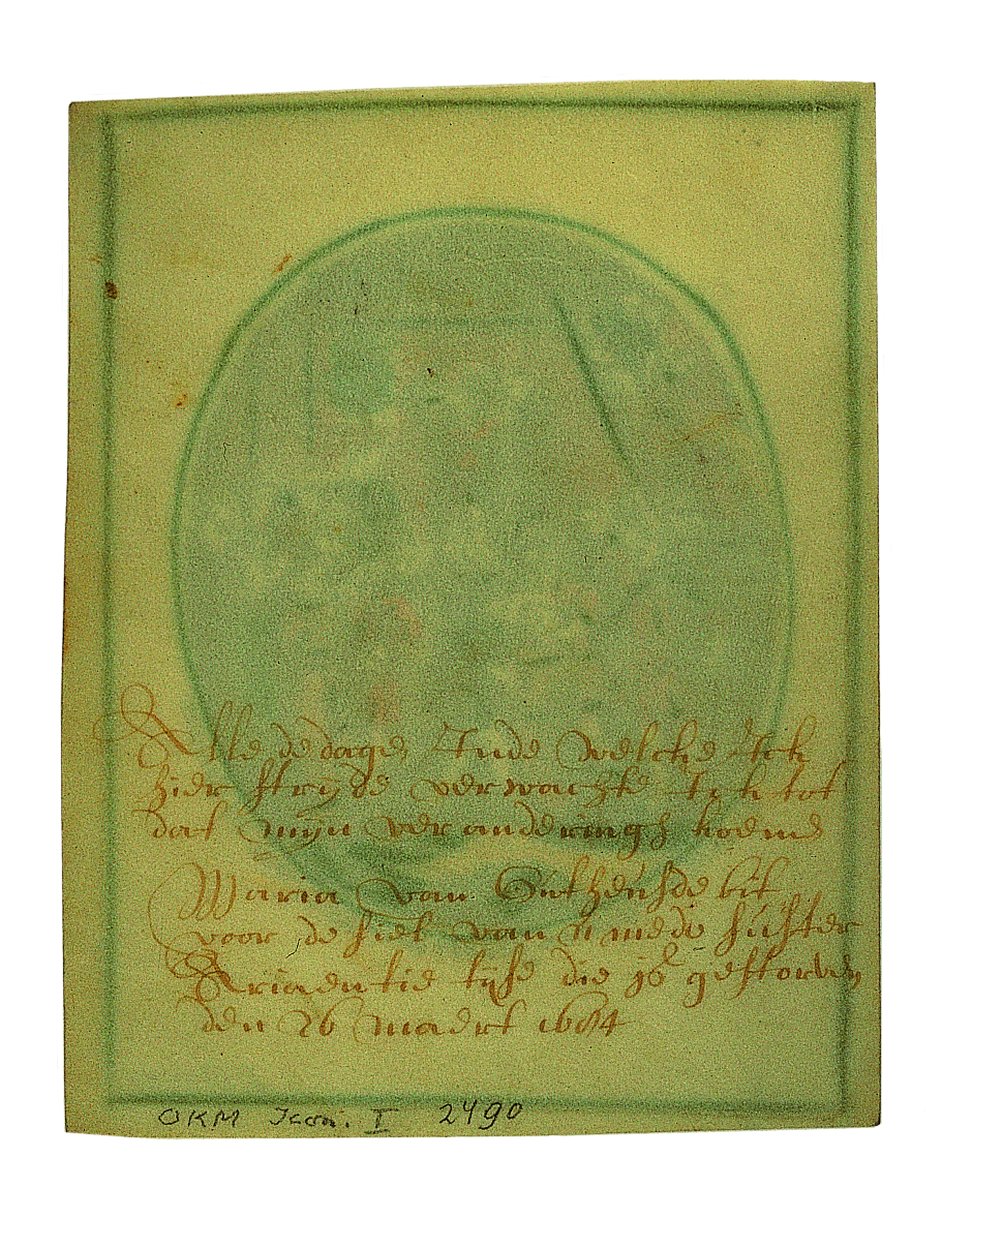 Alle de dage Inde welche Ick
hier stryde verwachte Ick tot
dat mijn veranderingh koemd
Maria van bit
voor de siel van u mede suster
Ariaentie die is gestorven
den 26 maert 1684
OKM Icon. I 2490